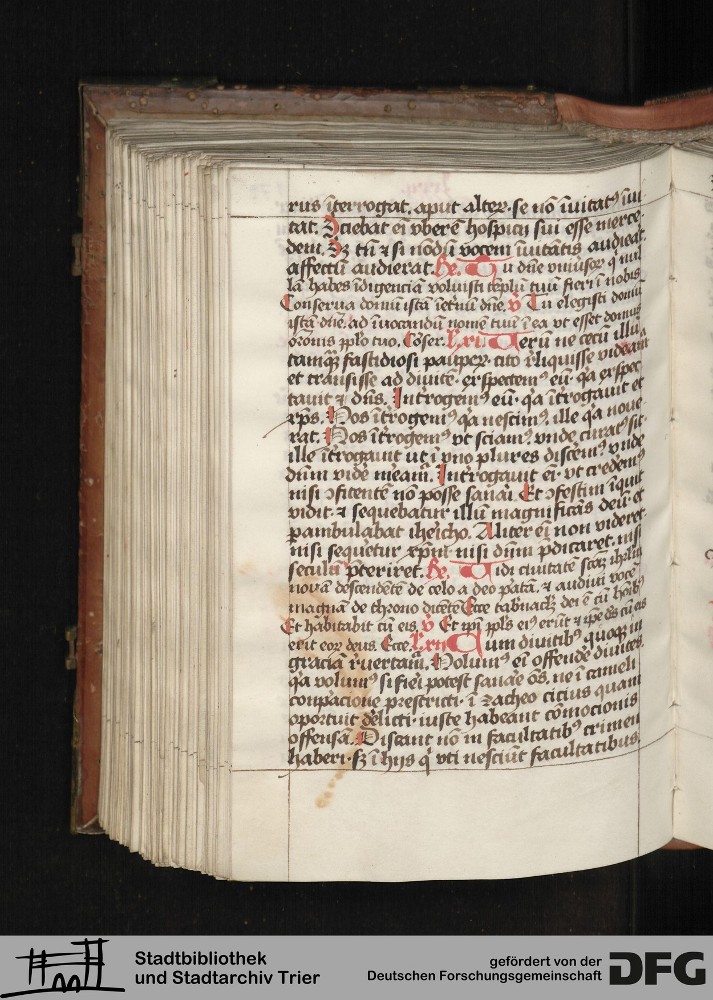 rus īterrogat. aput alteꝝ. se nō īuitatꝰ īui
tat. Sciebat ei vberē hospicij sui esse merce
dem. Sꝫ tn̄ ⁊ si nōdū vocem īuitātis audieat.
affectū audierat. Re. Tu dn̄e vniūsoꝝ q̇ nul
lā habes īdigenciā voluisti tēplū tuū fieri ī nobis
Conserua domū istā īetnū dn̄e. ꝟ Tu elegisti domū
istā dn̄e. ad īuocandū nomē tuū ī ea vt esset domus
or̄onis ꝓplo tuo. Cōser. lxi Ueꝝ ne cetū illūī
tamqꝫ fastidiosi paupeꝝ. cito r̄liquisse videant
et transisse ad diuitē. exspectemꝰ eū. qa exspec
tauit ⁊ dn̄s. Introgemꝰ eū. qa ītrogauit et
xp̄s. Nos ītrogemꝰ qa nescimꝰ. ille qa noue
rat. Nos ītrogemꝰ vt sciamꝰ vnde curatꝰ sit.
ille ītrogauit ut ī vno plures discemꝰ vnde
dn̄m videe meamr̄. Introgauit ei. vt credemꝰ
nisi ꝯfitentē nō posse sanai. Et ꝯfestim īquit
vidit. ⁊ sequebatur illū magnificās deū. et
ꝑambulabat iheicho. Aliter ei non videret
nisi sequetur xp̄m. nisi dn̄m p̄dicaret. nisi
seculū p̄teriret. Re. Vidi ciuitatē scāꝫ ihrlm
nouā descendētē de celo a deo patā. ⁊ audiui vocē
magnā de throno dicētē Ecce tabnaclꝫ dei ē cū hoībꝰ
Et hābitabit cū eis. ꝟ Et ip̄i ppls eiꝰ erūt ⁊ ip̄e ds̄ cū eis
erit eoꝝ deus. Ecce. lxii Cum diuitibꝰ quoqꝫ in
graciā r̄uertamr̄. Nolumꝰ ei offende diuites.
qa volumꝰ si fiei potest sanae os. ne ī cameli
conpacione prestricti. ī zacheo cicius quam
oportuit delicti. iuste habeant cōmocionis
offensā. Discant nō in facultatibꝰ crimen
haberi. sꝫ ī hijs q̇ vti nesciūt facultatibus.
Stadtbibliothek
und Stadtarchiv Trier
gefördert von der
Deutschen Forschungsgemeinschaft DFG